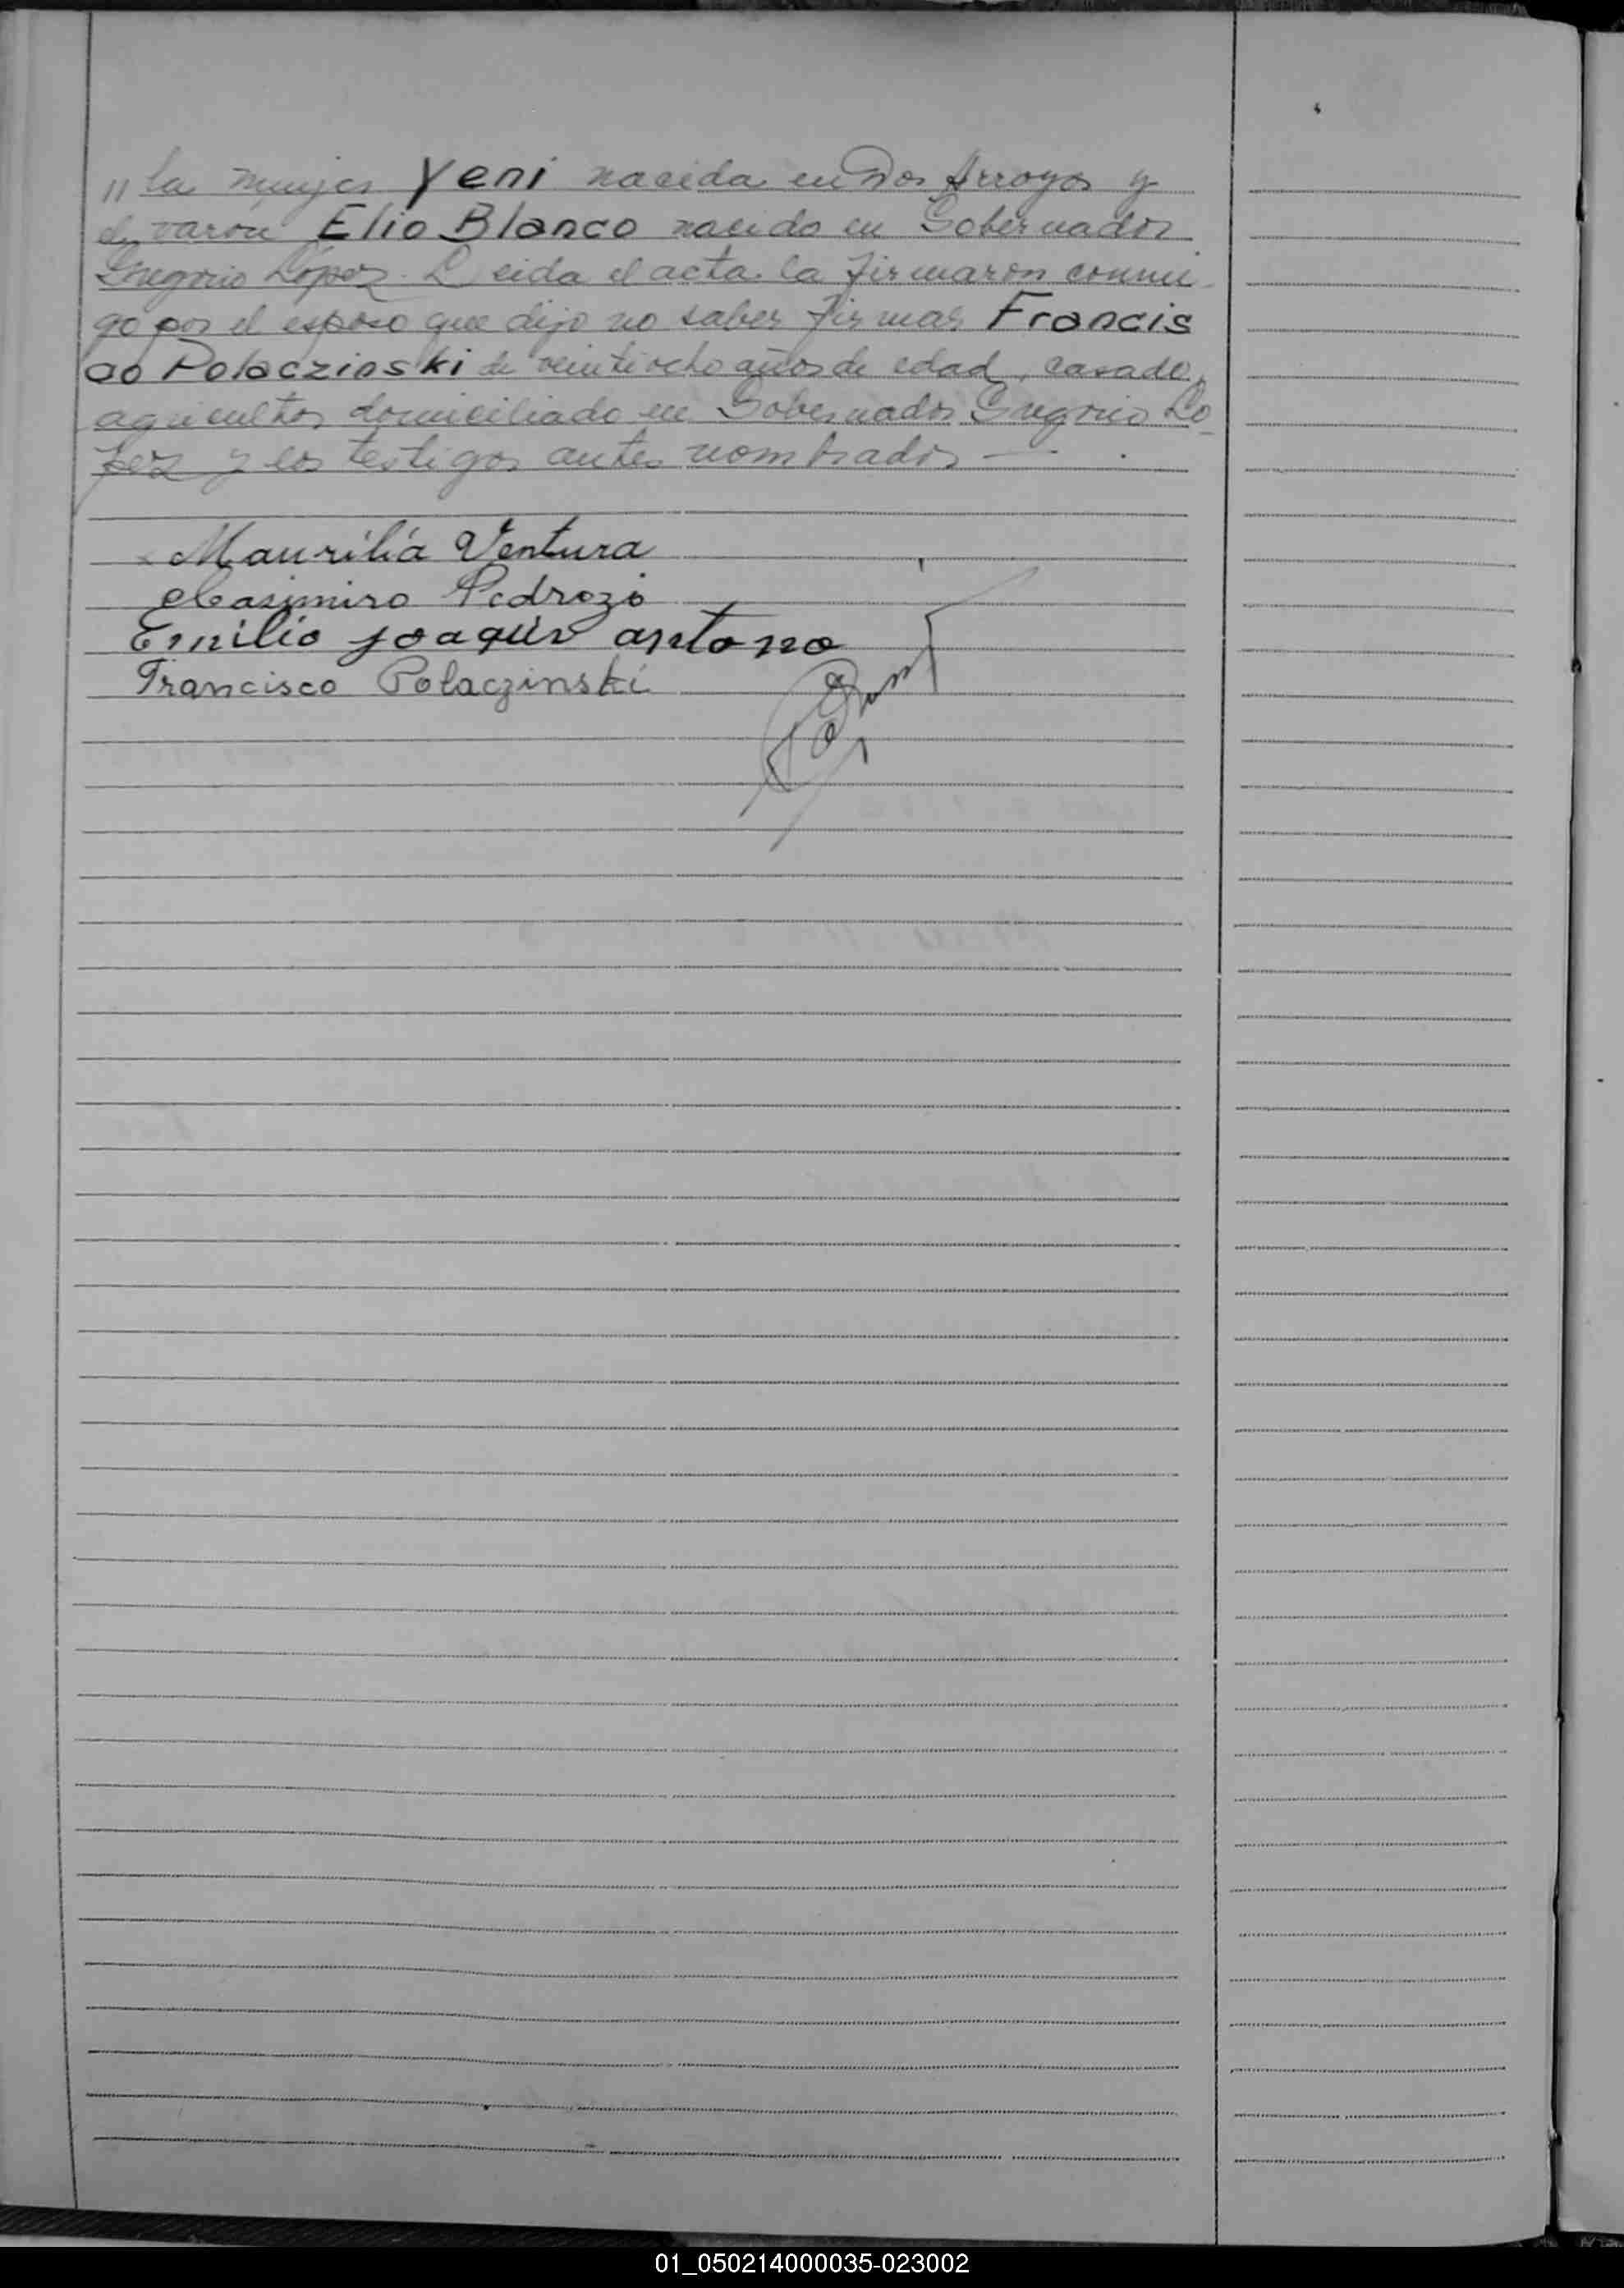 " la mujer Yeni nacida en Dos Arroyos y
el varón Elio Blanco nacido en Gobernador
Gregorio López. Leida el acta la firmaron conmi-
go por el esposo que dijo no saber firmar Francis
co Polaczinski de veintiocho años de edad, casado,
agricultor domiciliado en Gobernador Gregorio Ló-
pez y los testigos antes nombrados —
Maurilia Ventura
Casimiro Pedrozo
Emilio Joaquin antono
Francisco Polaczinski
01_050214000035-023002